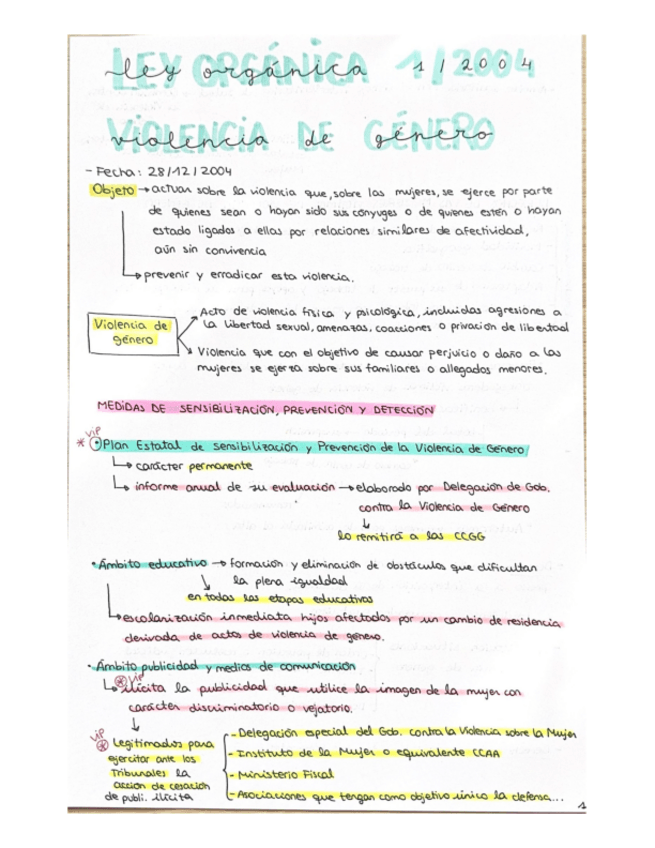 LEY ORGÁNICA 1/2004
VIOLENCIA DE GÉNERO
- Fecha: 28/12/2004
Objeto → actuar sobre la violencia que, sobre las mujeres, se ejerce por parte
de quienes sean o hayan sido sus cónyuges o de quienes estén o hayan
estado ligados a ellas por relaciones similares de afectividad,
aún sin convivencia
→ prevenir y erradicar esta violencia.
Violencia de
género
Acto de violencia física y psicológica, incluidas agresiones a
la libertad sexual, amenazas, coacciones o privación de libertad
Violencia que con el objetivo de causar perjuicio o daño a las
mujeres se ejerza sobre sus familiares o allegados menores.
MEDIDAS DE SENSIBILIZACIÓN, PREVENCIÓN Y DETECCIÓN
VIP
* Plan Estatal de Sensibilización y Prevención de la Violencia de Género
→ carácter permanente
→ informe anual de su evaluación → elaborado por Delegación de Gob.
contra la Violencia de Género
↓
lo remitirá a las CCGG
• Ámbito educativo → formación y eliminación de obstáculos que dificultan
la plena igualdad
en todas las etapas educativas
→ escolarización inmediata hijos afectados por un cambio de residencia
derivada de actos de violencia de género.
• Ámbito publicidad y medios de comunicación
VIP
→ ilícita la publicidad que utilice la imagen de la mujer con
carácter discriminatorio o vejatorio.
↓
VIP
* Legitimados para
ejercitar ante los
Tribunales la
acción de cesación
de publi. ilícita
- Delegación especial del Gob. contra la Violencia sobre la Mujer
- Instituto de la Mujer o equivalente CCAA
- Ministerio Fiscal
- Asociaciones que tengan como objetivo único la defensa...
1